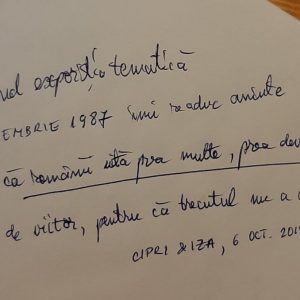 nd expoziția tematică
EMBRIE 1987 îmi readuc aminte
că românii uită prea multe, prea dev
de viitor, pentru că trecutul nu a
CIPRI & IZA, 6 OCT. 201